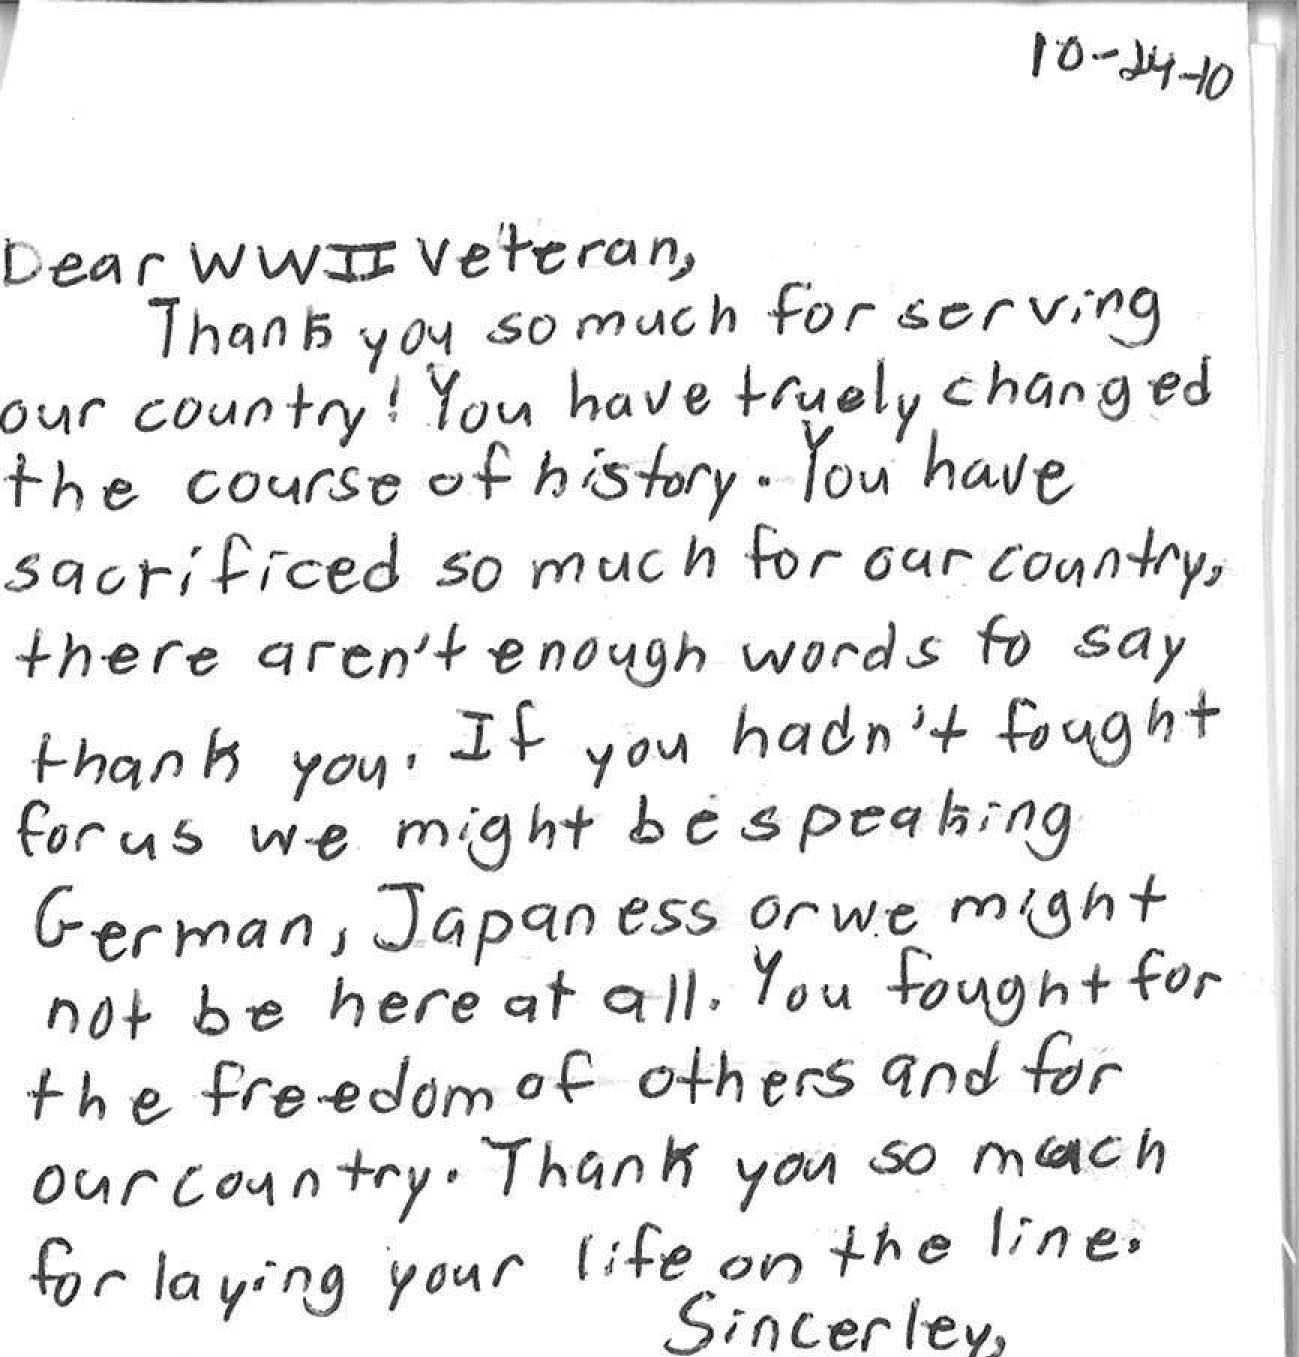 10-24-10
Dear WWII Veteran,
Thank you so much for serving
our country! You have truely changed
the course of history. You have
sacrificed so much for our country,
there aren't enough words to say
thank you. If you hadn't fought
for us we might be speaking
German, Japaness or we might
not be here at all. You fought for
the freedom of others and for
our country. Thank you so much
for laying your life on the line.
Sincerley,